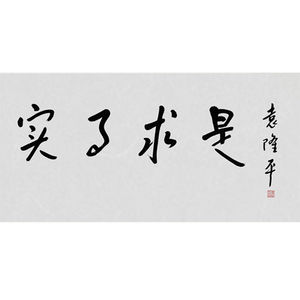 实事求是
袁隆平